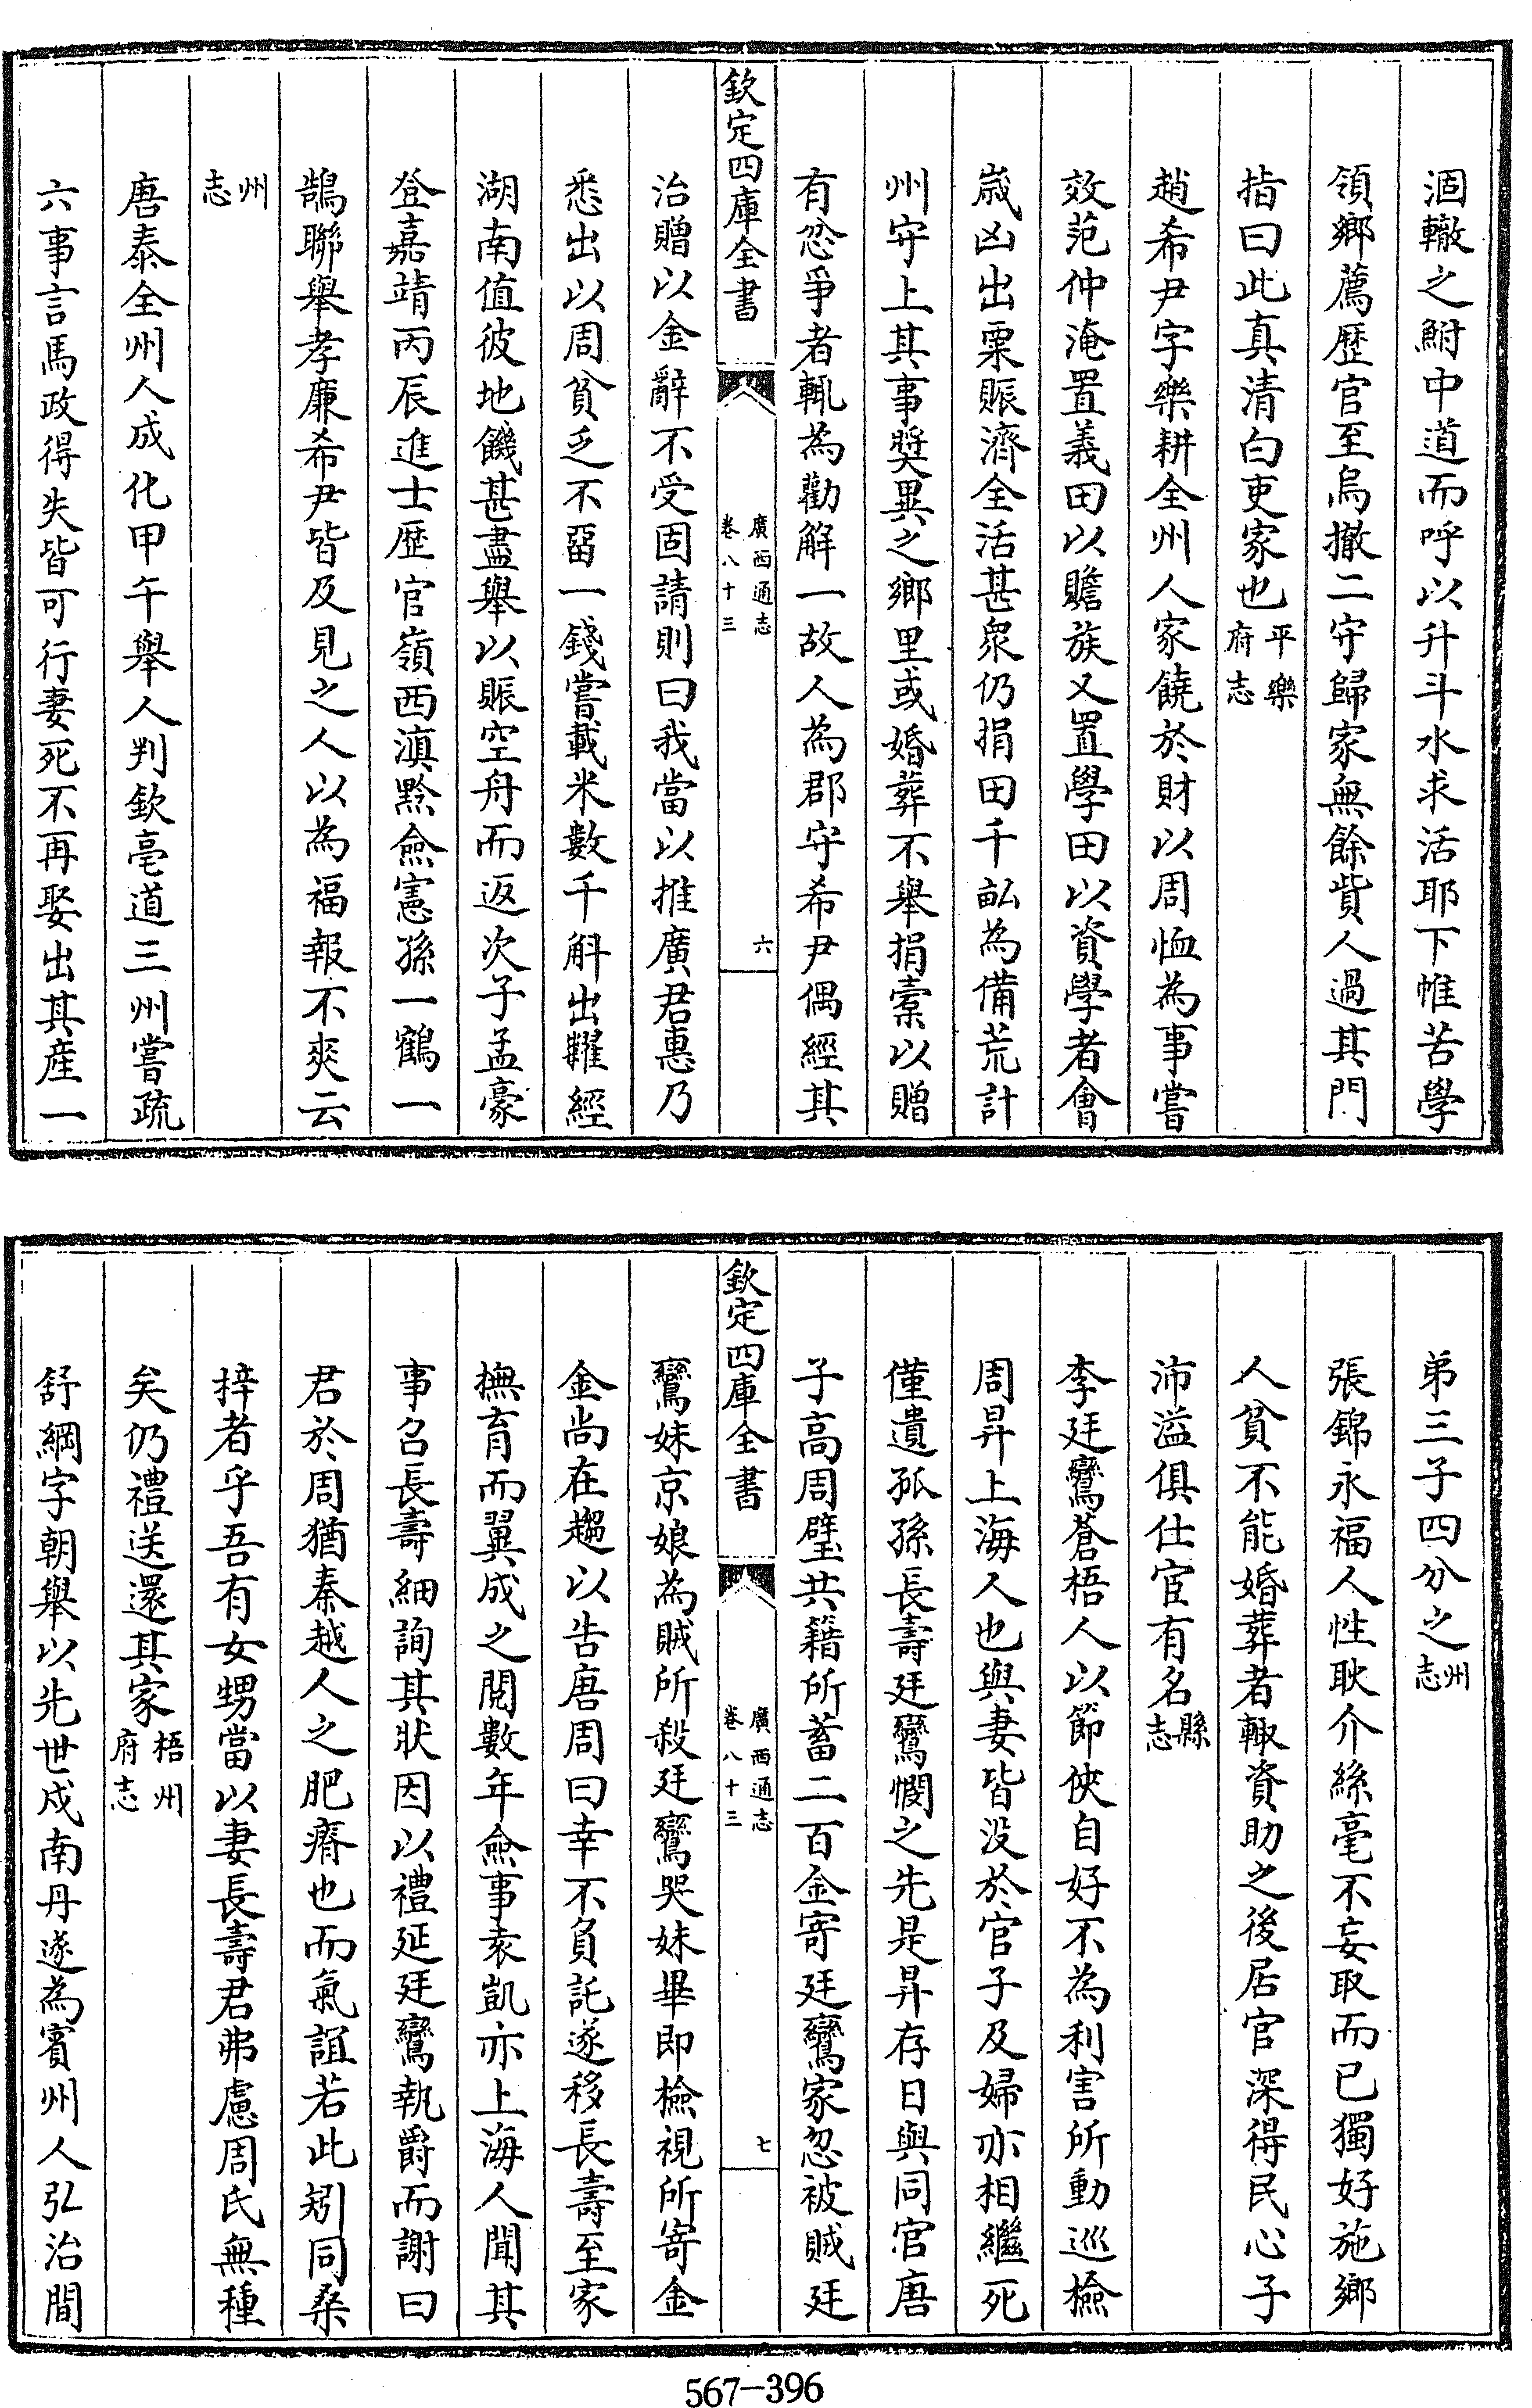 涸轍之鮒中道而呼以升斗水求活耶下帷苦學
領鄉薦歴官至烏撒二守歸家無餘貲人過其門
指曰此真清白吏家也平樂府志
趙希尹字樂耕全州人家饒於財以周恤為事嘗
效范仲淹置義田以贍族又置學田以資學者會
歳凶出粟賑濟全活甚衆仍捐田千畆為備荒計
州守上其事奬異之鄉里或婚葬不舉捐槖以贈
有忿爭者輒為勸解一故人為郡守希尹偶經其
欽定四庫全書
廣西通志
卷八十三
六
治贈以金辭不受固請則曰我當以推廣君惠乃
悉出以周貧乏不畱一錢嘗載米數千斛出糶經
湖南值彼地饑甚盡舉以賑空舟而返次子孟豪
登嘉靖丙辰進士歴官嶺西滇黔僉憲孫一鶴一
鵠聯舉孝廉希尹皆及見之人以為福報不爽云
州志
唐泰全州人成化甲午舉人判欽亳道三州嘗疏
六事言馬政得失皆可行妻死不再娶出其産一
弟三子四分之州志
張錦永福人性耿介絲毫不妄取而已獨好施鄉
人貧不能婚葬者輙資助之後居官深得民心子
沛溢俱仕宦有名縣志
李廷鸞蒼梧人以節俠自好不為利害所動巡檢
周昇上海人也與妻皆没於官子及婦亦相繼死
僅遺孤孫長壽廷鸞憫之先是昇存日與同官唐
子高周璧共籍所蓄二百金寄廷鸞家忽被賊廷
欽定四庫全書
廣西通志
卷八十三
七
鸞妹京娘為賊所殺廷鸞哭妹畢即檢視所寄金
金尚在趨以告唐周曰幸不負託遂移長壽至家
撫育而翼成之閱數年僉事袁凱亦上海人聞其
事召長壽細詢其狀因以禮延廷鸞執爵而謝曰
君於周猶秦越人之肥瘠也而氣誼若此矧同桑
梓者乎吾有女甥當以妻長壽君弗慮周氏無種
矣仍禮送還其家梧州府志
舒綱字朝舉以先世戍南丹遂為賓州人弘治間
567-396